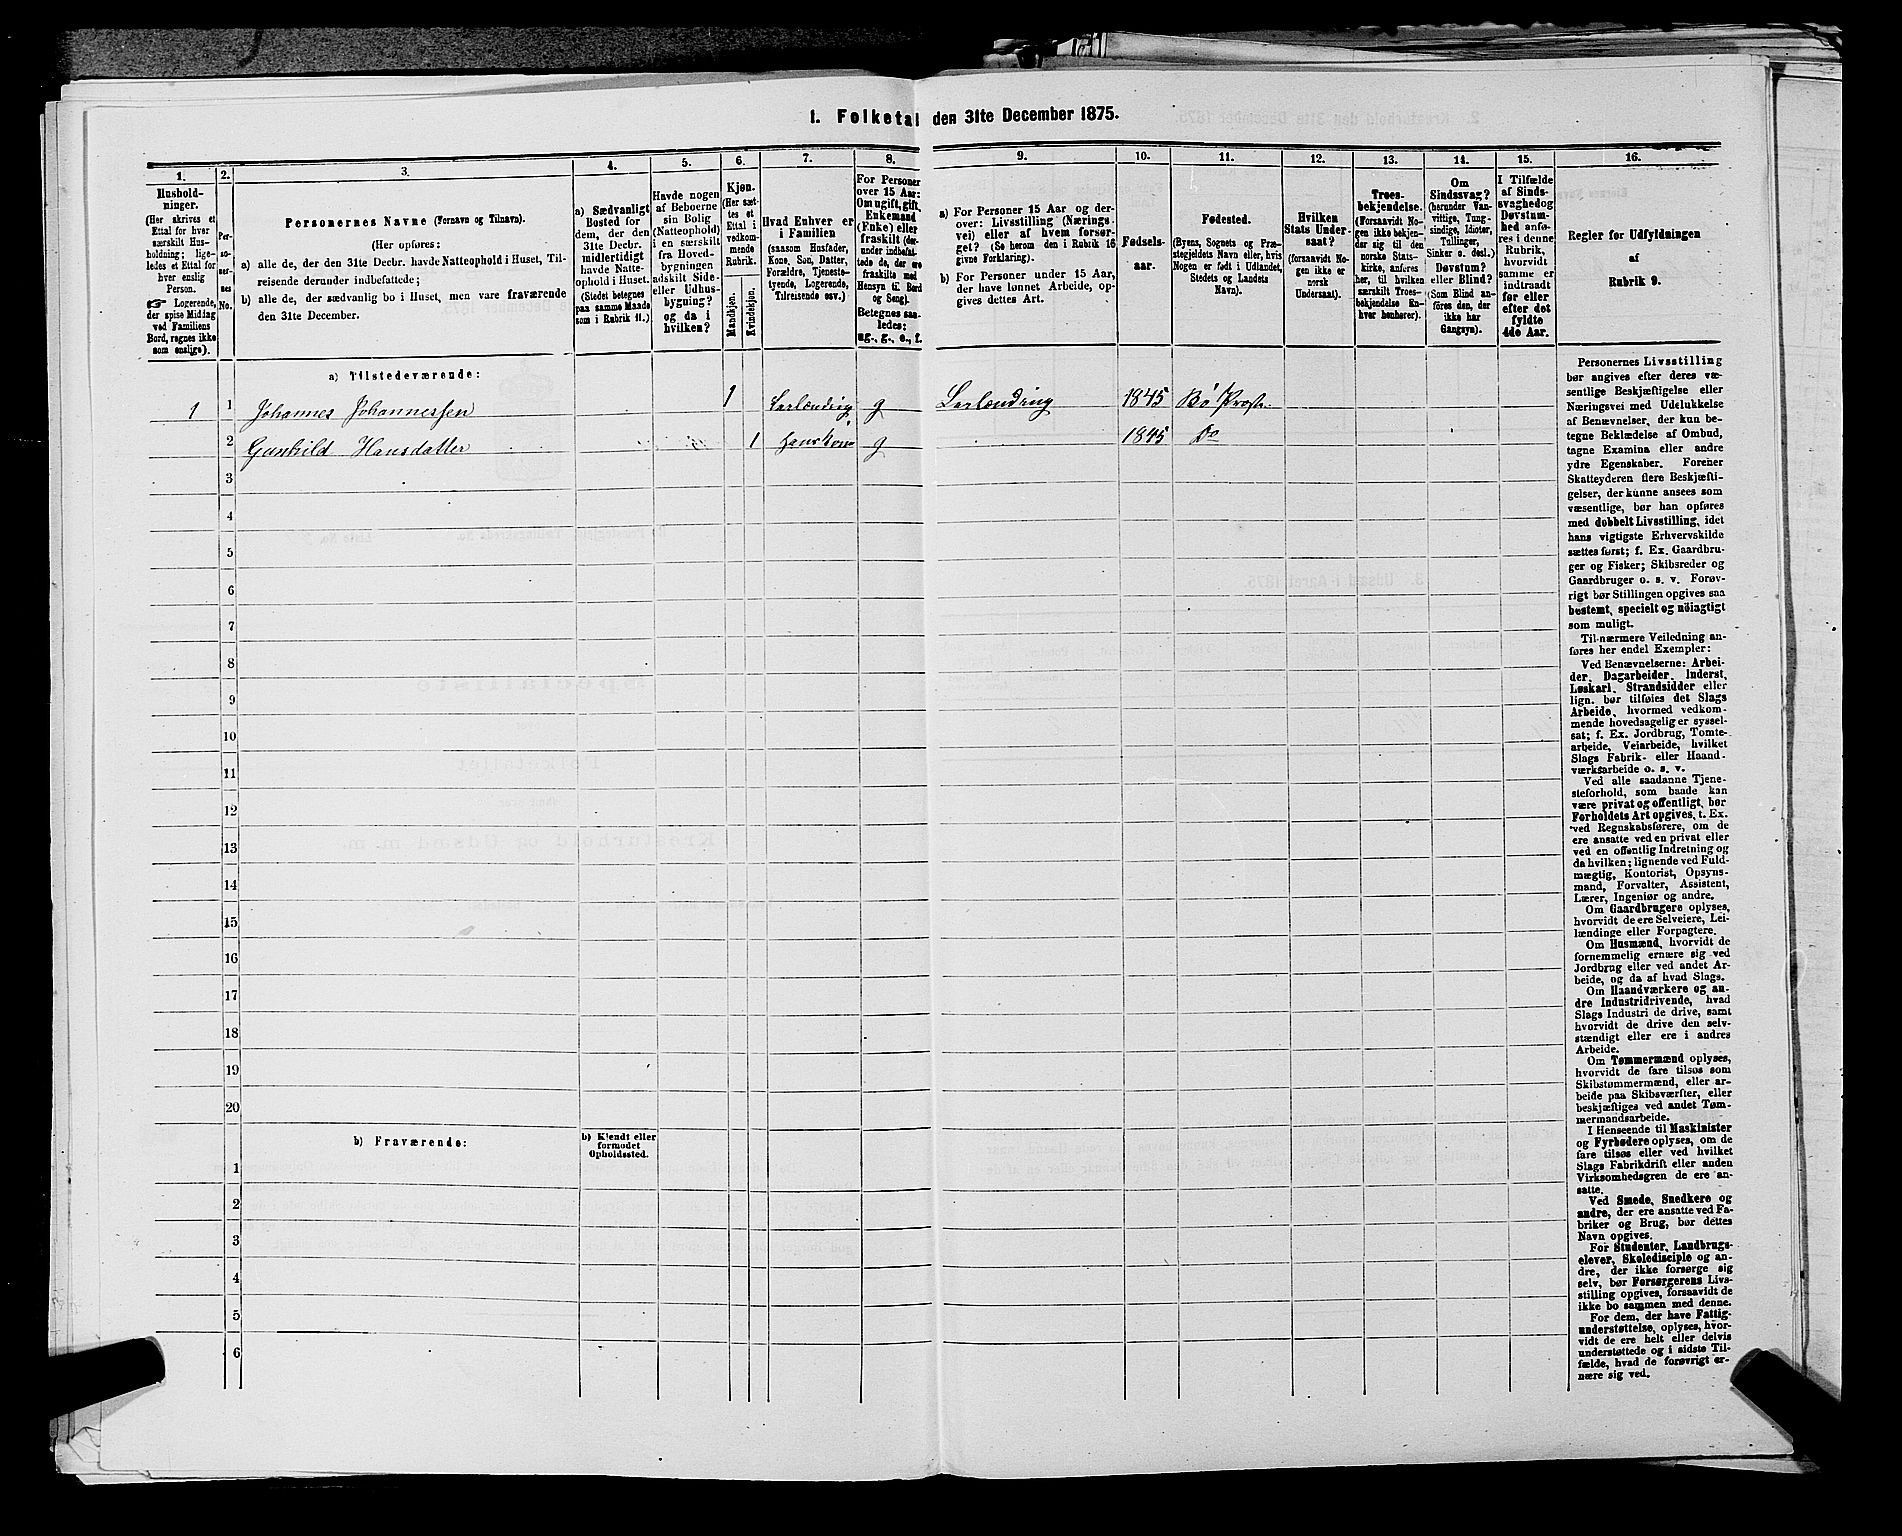 1. Folketal den 31te December 1875.
1.
2.
3.
4.
5.
6.
7.
8.
9.
10.
11.
12.
13.
14.
15.
16.
Hushold-
ninger.
(Her skrives et
Ettal for hver
særskilt Hus-
holdning; lige-
ledes et Ettal for
hver enslig
Person.
☞ Logerende,
der spise Middag
ved Familiens
Bord, regnes ikke
som enslige).
Per-
so-
ner-
nes
No.
Personernes Navne (Fornavn og Tilnavn).
(Her opføres:
a) alle de, der den 31te Decbr. havde Natteophold i Huset, Til-
reisende derunder indbefattede;
b) alle de, der sædvanlig bo i Huset, men vare fraværende
den 31te December.
a) Sædvanligt
Bosted for
dem, der den
31te Decbr.
midlertidigt
havde Natte-
ophold i Huset.
(Stedet betegnes
paa samme Maade
som i Rubrik 11.)
Havde nogen
af Beboerne
sin Bolig
(Natteophold)
i en særskilt
fra Hoved-
bygningen
adskilt Side-
eller Udhus-
bygning?
og da i
hvilken?
Kjøn.
(Her sæt-
tes et
Ettal i
vedkom-
mende
Rubrik.
Mandkjøn.
Kvindekjøn.
Hvad Enhver er
i Familien
(saasom Husfader,
Kone, Søn, Datter,
Forældre, Tjeneste-
tyende, Logerende,
Tilreisende osv.)
For Personer
over 15 Aar:
Om ugift, gift,
Enkemand
(Enke) eller
fraskilt (der-
under indbefat-
tede de, der ere
fraskilte med
Hensyn til Bord
og Seng).
Betegnes saa-
ledes:
ug., g., e., f.
a) For Personer 15 Aar og der-
over: Livsstilling (Nærings-
vei) eller af hvem forsør-
get? (Se herom den i Rubrik 16
givne Forklaring).
b) For Personer under 15 Aar,
der have lønnet Arbeide, op-
gives dettes Art.
Fødsels-
aar.
Fødested.
(Byens, Sognets og Præ-
stegjeldets Navn eller, hvis
Nogen er født i Udlandet,
Stedets og Landets
Navn).
Hvilken
Stats Under-
saat?
(forsaavidt No-
gen ikke er
norsk
Undersaat).
Troes-
bekjendelse.
(Forsaavidt No-
gen ikke bekjen-
der sig til den
norske Stats-
kirke, anføres
her, til hvilken
særskilt Troes-
bekjendelse En-
hver henhører).
Om
Sindssvag?
(herunder Van-
vittige, Tung-
sindige, Idioter,
Tullinger,
Sinker o. desl.)
Døvstum?
eller Blind?
(Som Blind an-
føres den, der
ikke har
Gangsyn).
I Tilfælde
af Sinds-
svaghed og
Døvstum-
hed anfø-
res i denne
Rubrik,
hvorvidt
samme er
indtraadt
før eller
efter det
fyldte
4de Aar.
Regler for Udfyldningen
af
Rubrik 9.
a) Tilstedeværende:
1 1 Johannes Johannessen 1 g 1845 Bø Præst.
2 Gunhild Hansdatter 1 g 1845 Do
3
4
5
6
7
8
9
10
11
12
13
14
15
16
17
18
19
20
b) Fraværende:
b) Kjendt eller
formodet
Opholdssted.
1
2
3
4
5
6
Personernes Livsstilling
bør angives efter deres væ-
sentlige Beskjæftigelse eller
Næringsvei med Udelukkelse
af Benævnelser, der kun be-
tegne Beklædelse af Ombud,
tagne Examina eller andre
ydre Egenskaber. Forener
Skatteyderen flere Beskjæfti-
gelser, der kunne ansees som
væsentlige, bør han opføres
med dobbelt Livsstilling, idet
hans vigtigste Erhvervskilde
sættes først; f. Ex. Gaardbru-
ger og Fisker; Skibsreder og
Gaardbruger o. s. v. Forøv-
rigt bør Stillingen opgives saa
bestemt, specielt og nöiagtigt
som muligt.
Til nærmere Veiledning an-
føres her endel Exempler:
Ved Benævnelserne: Arbei-
der, Dagarbeider, Inderst,
Løskarl, Strandsidder eller
lign. bør tilføies det Slags
Arbeide, hvormed vedkom-
mende hovedsagelig er syssel-
sat; f. Ex. Jordbrug, Tomte-
arbeide, Veiarbeide, hvilket
Slags Fabrik- eller Haand-
værksarbeide o. s. v.
Ved alle saadanne Tjene-
steforhold, som baade kan
være privat og offentligt, bør
Forholdets Art opgives, t. Ex.
ved Regnskabsførere, om de
ere ansatte ved en privat eller
ved en offentlig Indretning og
da hvilken; lignende ved Fuld-
mægtig, Kontorist, Opsyns-
mand, Forvalter, Assistent,
Lærer, Ingeniør og andre.
Om Gaardbrugere oplyses,
hvorvidt de ere Selveiere, Lei-
lændinge eller Forpagtere.
Om Husmænd, hvorvidt de
fornemmelig ernære sig ved
Jordbrug eller ved andet Ar-
beide, og da af hvad Slags.
Om Haandværkere og an-
dre Industridrivende, hvad
Slags Industri de drive, samt
hvorvidt de drive den selv-
stændigt eller ere i andres
Arbeide.
Om Tømmermænd oplyses,
hvorvidt de fare tilsøs som
Skibstømmermænd, eller ar-
beide paa Skibsværfter, eller
beskjæftiges ved andet Tøm-
mermandsarbeide.
I Henseende til Maskinister
og Fyrbødere oplyses, om de
fare tilsøs eller ved hvilket
Slags Fabrikdrift eller anden
Virksomhedsgren de ere an-
satte.
Ved Smede, Snedkere og
andre, der ere ansatte ved Fa-
briker og Brug, bør dettes
Navn opgives.
For Studenter, Landbrugs-
elever, Skoledisciple og an-
dre, der ikke forsørge sig
selv, bør Forsørgerens Livs-
stilling opgives, forsaavidt de
ikke bo sammen med denne.
For dem, der have Fattig-
understøttelse, oplyses, hvor-
vidt de ere helt eller delvis
understøttede og i sidste Til-
fælde, hvad de forøvrigt er-
nære sig ved.